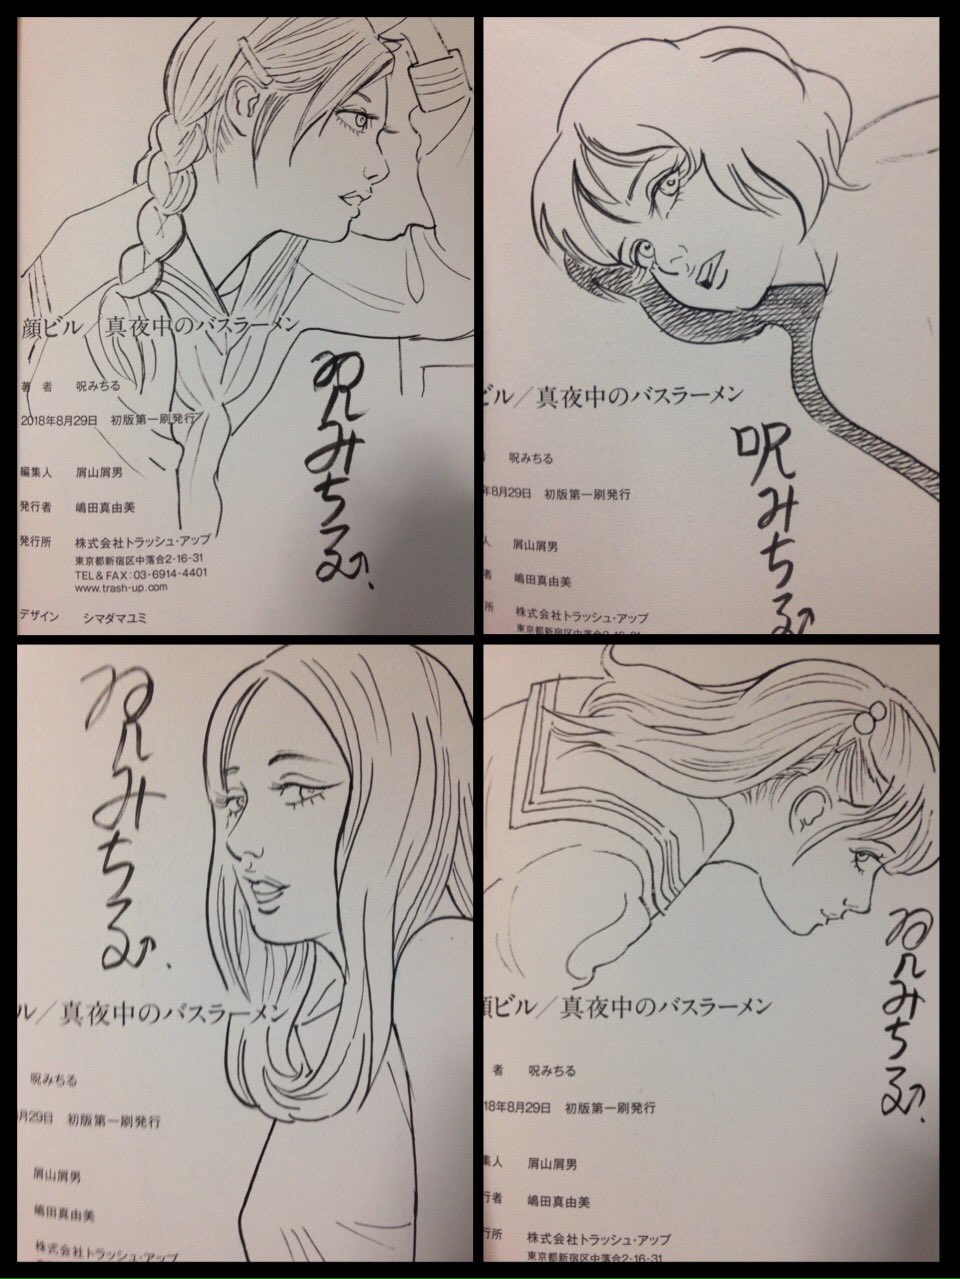 顔ビル／真夜中のバスラーメン
著　者　呪みちる
2018年8月29日　初版第一刷発行
編集人　屑山屑男
発行者　嶋田真由美
発行所　株式会社トラッシュ・アップ
東京都新宿区中落合2-16-31
TEL＆FAX：03-6914-4401
www.trash-up.com
デザイン　シマダマユミ
呪みちる
ビル／真夜中のバスラーメン
呪みちる
年8月29日　初版第一刷発行
人　屑山屑男
者　嶋田真由美
所　株式会社トラッシュ・アップ
東京都新宿区中落合2-16-31
呪みちる
呪みちる
ル／真夜中のバスラーメン
呪みちる
月29日　初版第一刷発行
屑山屑男
嶋田真由美
株式会社トラッシュ・アップ
顔ビル／真夜中のバスラーメン
者　呪みちる
18年8月29日　初版第一刷発行
集人　屑山屑男
行者　嶋田真由美
行所　株式会社トラッシュ・アップ
東京都新宿区中落合2-16-31
呪みちる